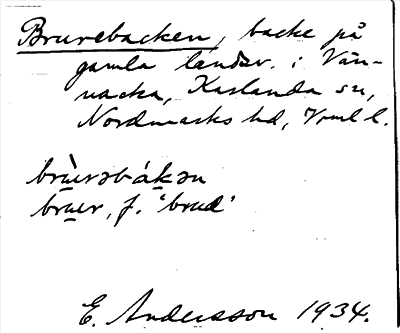 Bruvebacken, backe på
gamla landsv. i Vän-
nacka, Karlanda sn,
Nordmarks hd, Vrml l.
brùvəbákən
bruv, f. 'brud'
E. Andersson 1934.